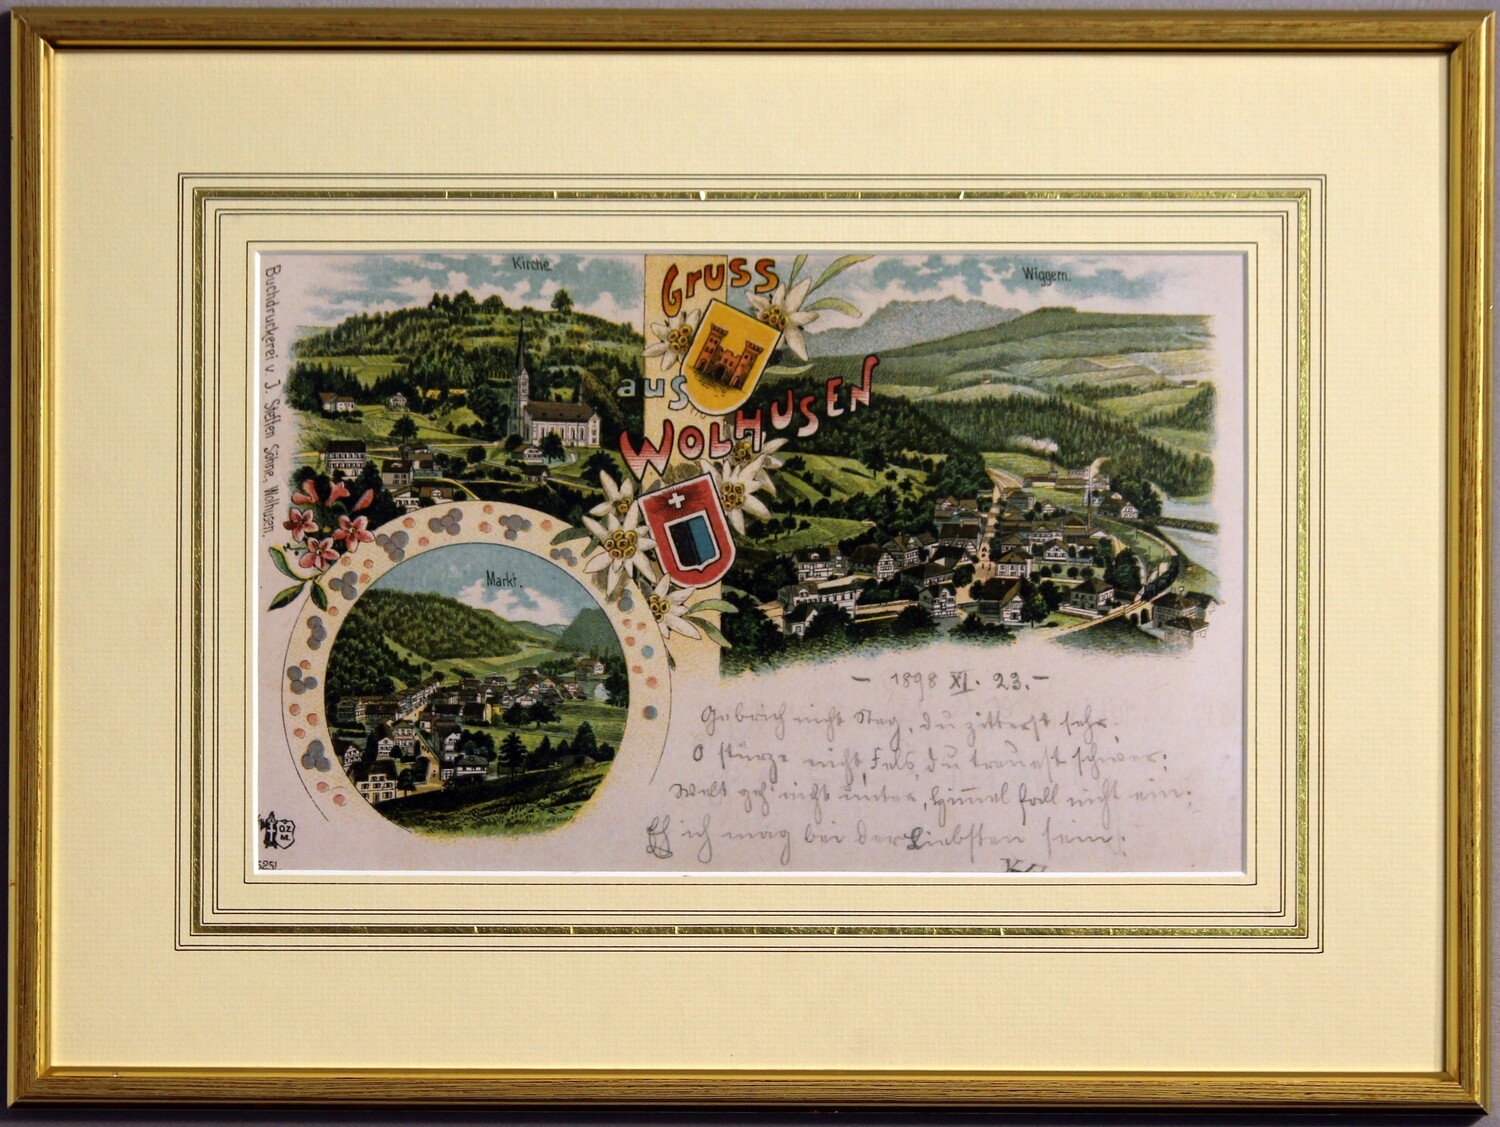 Kirche.
Gruss
aus
WOLHUSEN
Wiggern.
Buchdruckerei v. J. Steffen Söhne, Wolhusen.
Markt.
- 1898 XI. 23. -
Gebrich nicht Steg, du zitterst sehr.
O stürze nicht, Fels, du träuest schwer;
Welt geh' nicht unter, Himmel fall nicht ein;
Eh ich mag bei der Liebsten sein!
O.Z.
M.
5251.